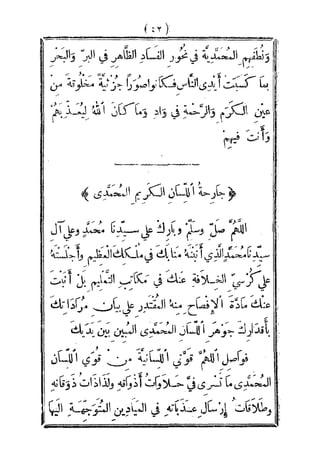 (٤٢)
ونُطَفِهِم المُحَمَّدِيَّة فى نُحُورِ الفَسَادِ الظَّاهِرِ فى البَرِّ وَالبَحْرِ
بِمَا كَسَبَتْ أَيْدِى النَّاسِ فَكَانُوا صُوَرًا جُزْئِيَّةً مَخْلُوقَةً مِنْ
عَيْنِ الكَرَمِ وَالرَّحْمَةِ فى وَادِ وَمَا كَانَ اللهُ لِيُعَذِّبَهُمْ
وَأَنْتَ فِيهِمْ
﴿ جَارِحَةُ اللِّسَانِ الكَرِيمِ المُحَمَّدِى ﴾
اللَّهُمَّ صَلِّ وَسَلِّمْ وَبَارِكْ عَلى سَيِّدِنَا مُحَمَّدٍ وَعَلى آلِ
سَيِّدِنَا مُحَمَّدٍ الَّذِى أَنَبْتَهُ مَنَابَكَ فى مُلْكِكَ العَظِيمِ وَأَجْلَسْتَهُ
عَلى كُرْسِىِّ الخِلَافَةِ عَنْكَ فى مَكَاتِبِ التَّعْلِيمِ بَلْ أَثْبَتَّ
عَنْكَ مَادَّةَ الإِفْصَاحِ مِنْهُ المُقْتَدِرِ عَلى بَيَانِ مُرَادَاتِكَ
بِأَقْدَارِكَ جَوْهَرَ اللِّسَانِ المُحَمَّدِى المُبِينِ بَيْنَ يَدَيْكَ
فَوَاصِلِ اللَّهُمَّ قُوَّتِى اللِّسَانِيَّةَ مِنْ قُوَى اللِّسَانِ
المُحَمَّدِى مَا تَسْرِى فى حَلَاوَاتِ أَذْوَاقِهِ وَلَذَاذَاتِ ذَوَقَانِهِ
وَطَلَاقَاتُ إِرْسَالِ عَذَبَاتِهِ فى المَيَادِينِ المُتَوَجِّهَةِ إِلَيْهَا